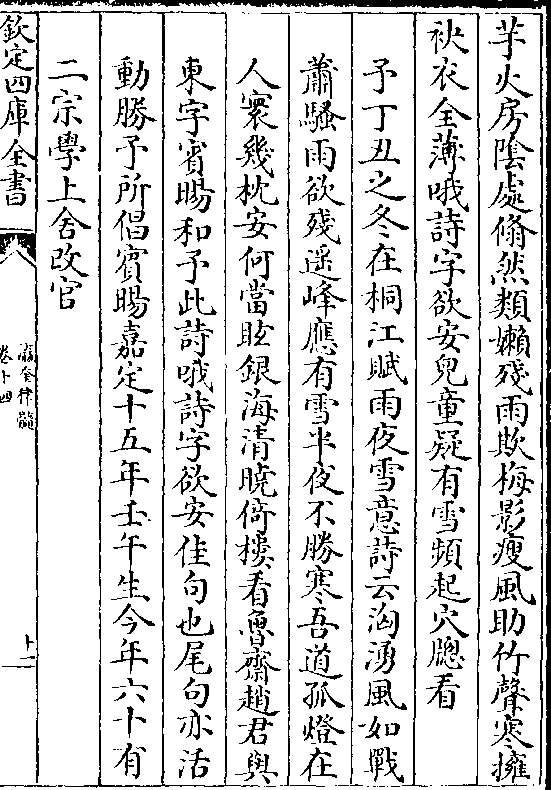 芋火房隂處翛然類嬾殘雨欺梅影瘦風助竹聲寒擁
袂衣全薄哦詩字欲安兒童疑有雪頻起穴牕看
予丁丑之冬在桐江賦雨夜雪意詩云洶湧風如戰
蕭騷雨欲殘遥峰應有雪半夜不勝寒吾道孤燈在
人寰幾枕安何當眩銀海清曉倚樓看魯齋趙君與
東字賓暘和予此詩哦詩字欲安佳句也尾句亦活
動勝予所倡賓暘嘉定十五年壬午生今年六十有
二宗學上舍改官
欽定四庫全書
瀛奎律髓
卷十四
十二